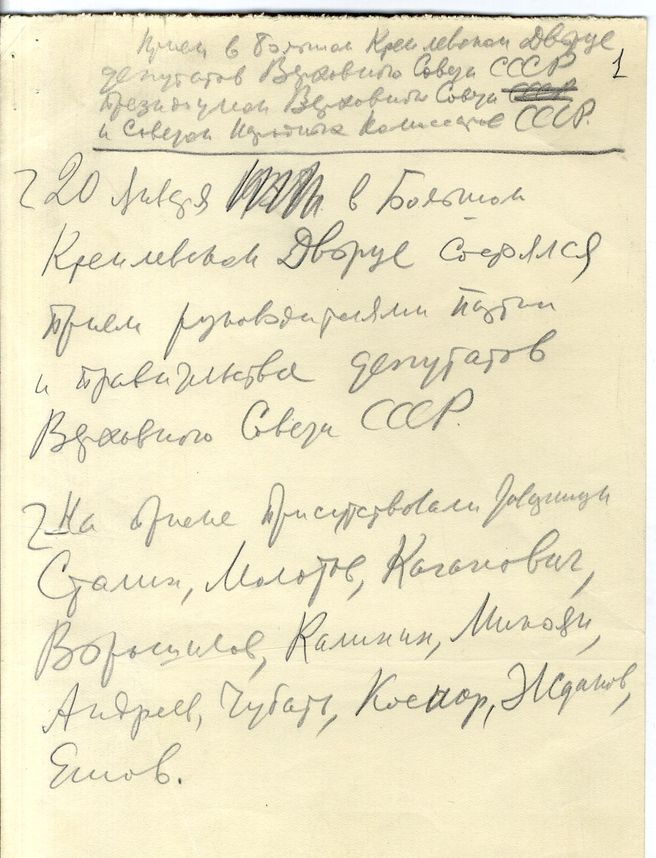 Прием в Большом Кремлевском Дворце
депутатов Верховного Совета СССР 1
Президиумом Верховного Совета СССР
и Советом Народных Комиссаров СССР.
20 января в Большом
Кремлевском Дворце состоялся
прием руководителями партии
и правительства депутатов
Верховного Совета СССР.
На приеме присутствовали товарищи
Сталин, Молотов, Каганович,
Ворошилов, Калинин, Микоян,
Андреев, Чубарь, Косиор, Жданов,
Ежов.